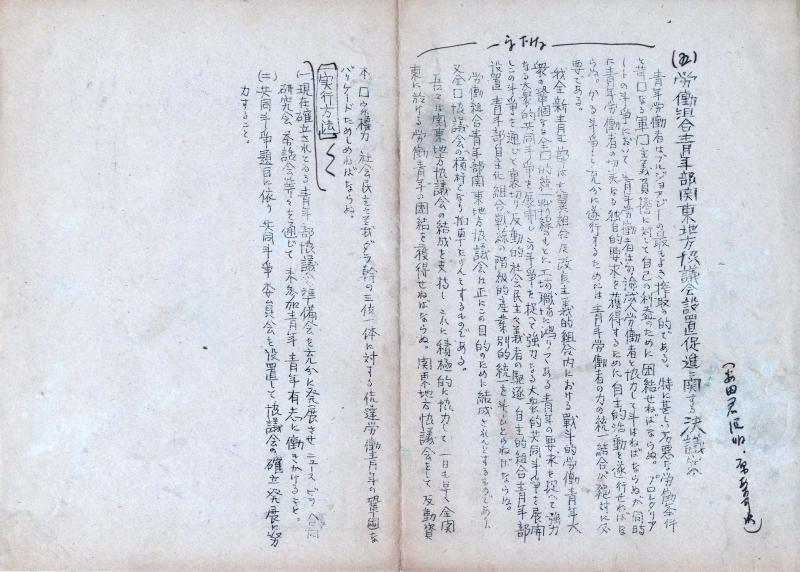 一字下げる
(五)労働組合青年部関東地方協議会設置促進に関する決議案
青年労働者はブルジョアジーの最もよき搾取の的である。特に甚しい劣悪な労働条件
と苛酷なる軍事主義負担に対して自己の利益のために団結せねばならぬ。プロレタリア
ートの斗争において青年労働者は勿論成年労働者と協力して斗はねばならぬが同時
に青年労働者の切実なる独自的要求を獲得するために自主的活動を遂行せねばな
らぬ。かゝる斗争を充分に遂行するためには青年労働者の力の統一結合が絶対に必
要である。
我全新青年部は左翼組合及改良主義的組合内における戦斗的労働青年大
衆の鞏固なる全国的統一戦線のもとに工場職場に漲りてある青年の要求を捉へて強力
なる大衆的共同斗争を展開しこの斗争を捉て強力なる大衆的共同斗争を展開
しこの斗争を通じて裏切り反動的社会民主々義者の駆逐、自主的組合青年部
設置青年部の自主化組合戦線の階級的産業別的統一を斗ひとらねばならぬ。
労働組合青年部関東地方協議会は正にこの目的のために結成されんとするものであり、
又全国協議会の横杆となり拍車たらんとするものである。
吾々は関東地方協議会の結成を支持しこれに積極的に協力して一日も早く全関
東に於ける労働青年の団結を獲得せねばならぬ。関東地方協議会をして反動資
本、国家権力、社会民主主義ダラ幹の三位一体に対する佐蓮労働青年の鞏固な
バリケードたらしめねばならぬ
[実行方法]
(一)現在確立されてゐる青年部協議会準備会を充分に発展させニュース、ビラ、合同
研究会、茶話会等々を通じて未参加青年、青年有志に働きかけること。
(二)共同斗争題目に依り共同斗争委員会を設置して協議会の確立発展に努
力すること。